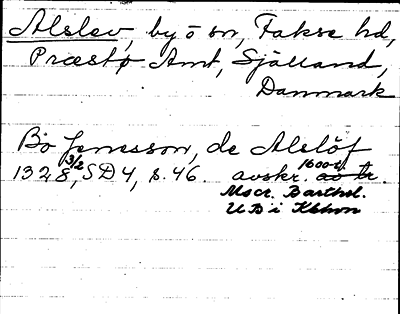 Alslev, by o sn, Fakse hd,
Præstø Amt, Själland,
Danmark
Bo Jonesson, de Alslöf
1328 3/2, SD 4, s. 46. avskr. 1600-t.
Mscr. Barthol.
UB i Kbhvn